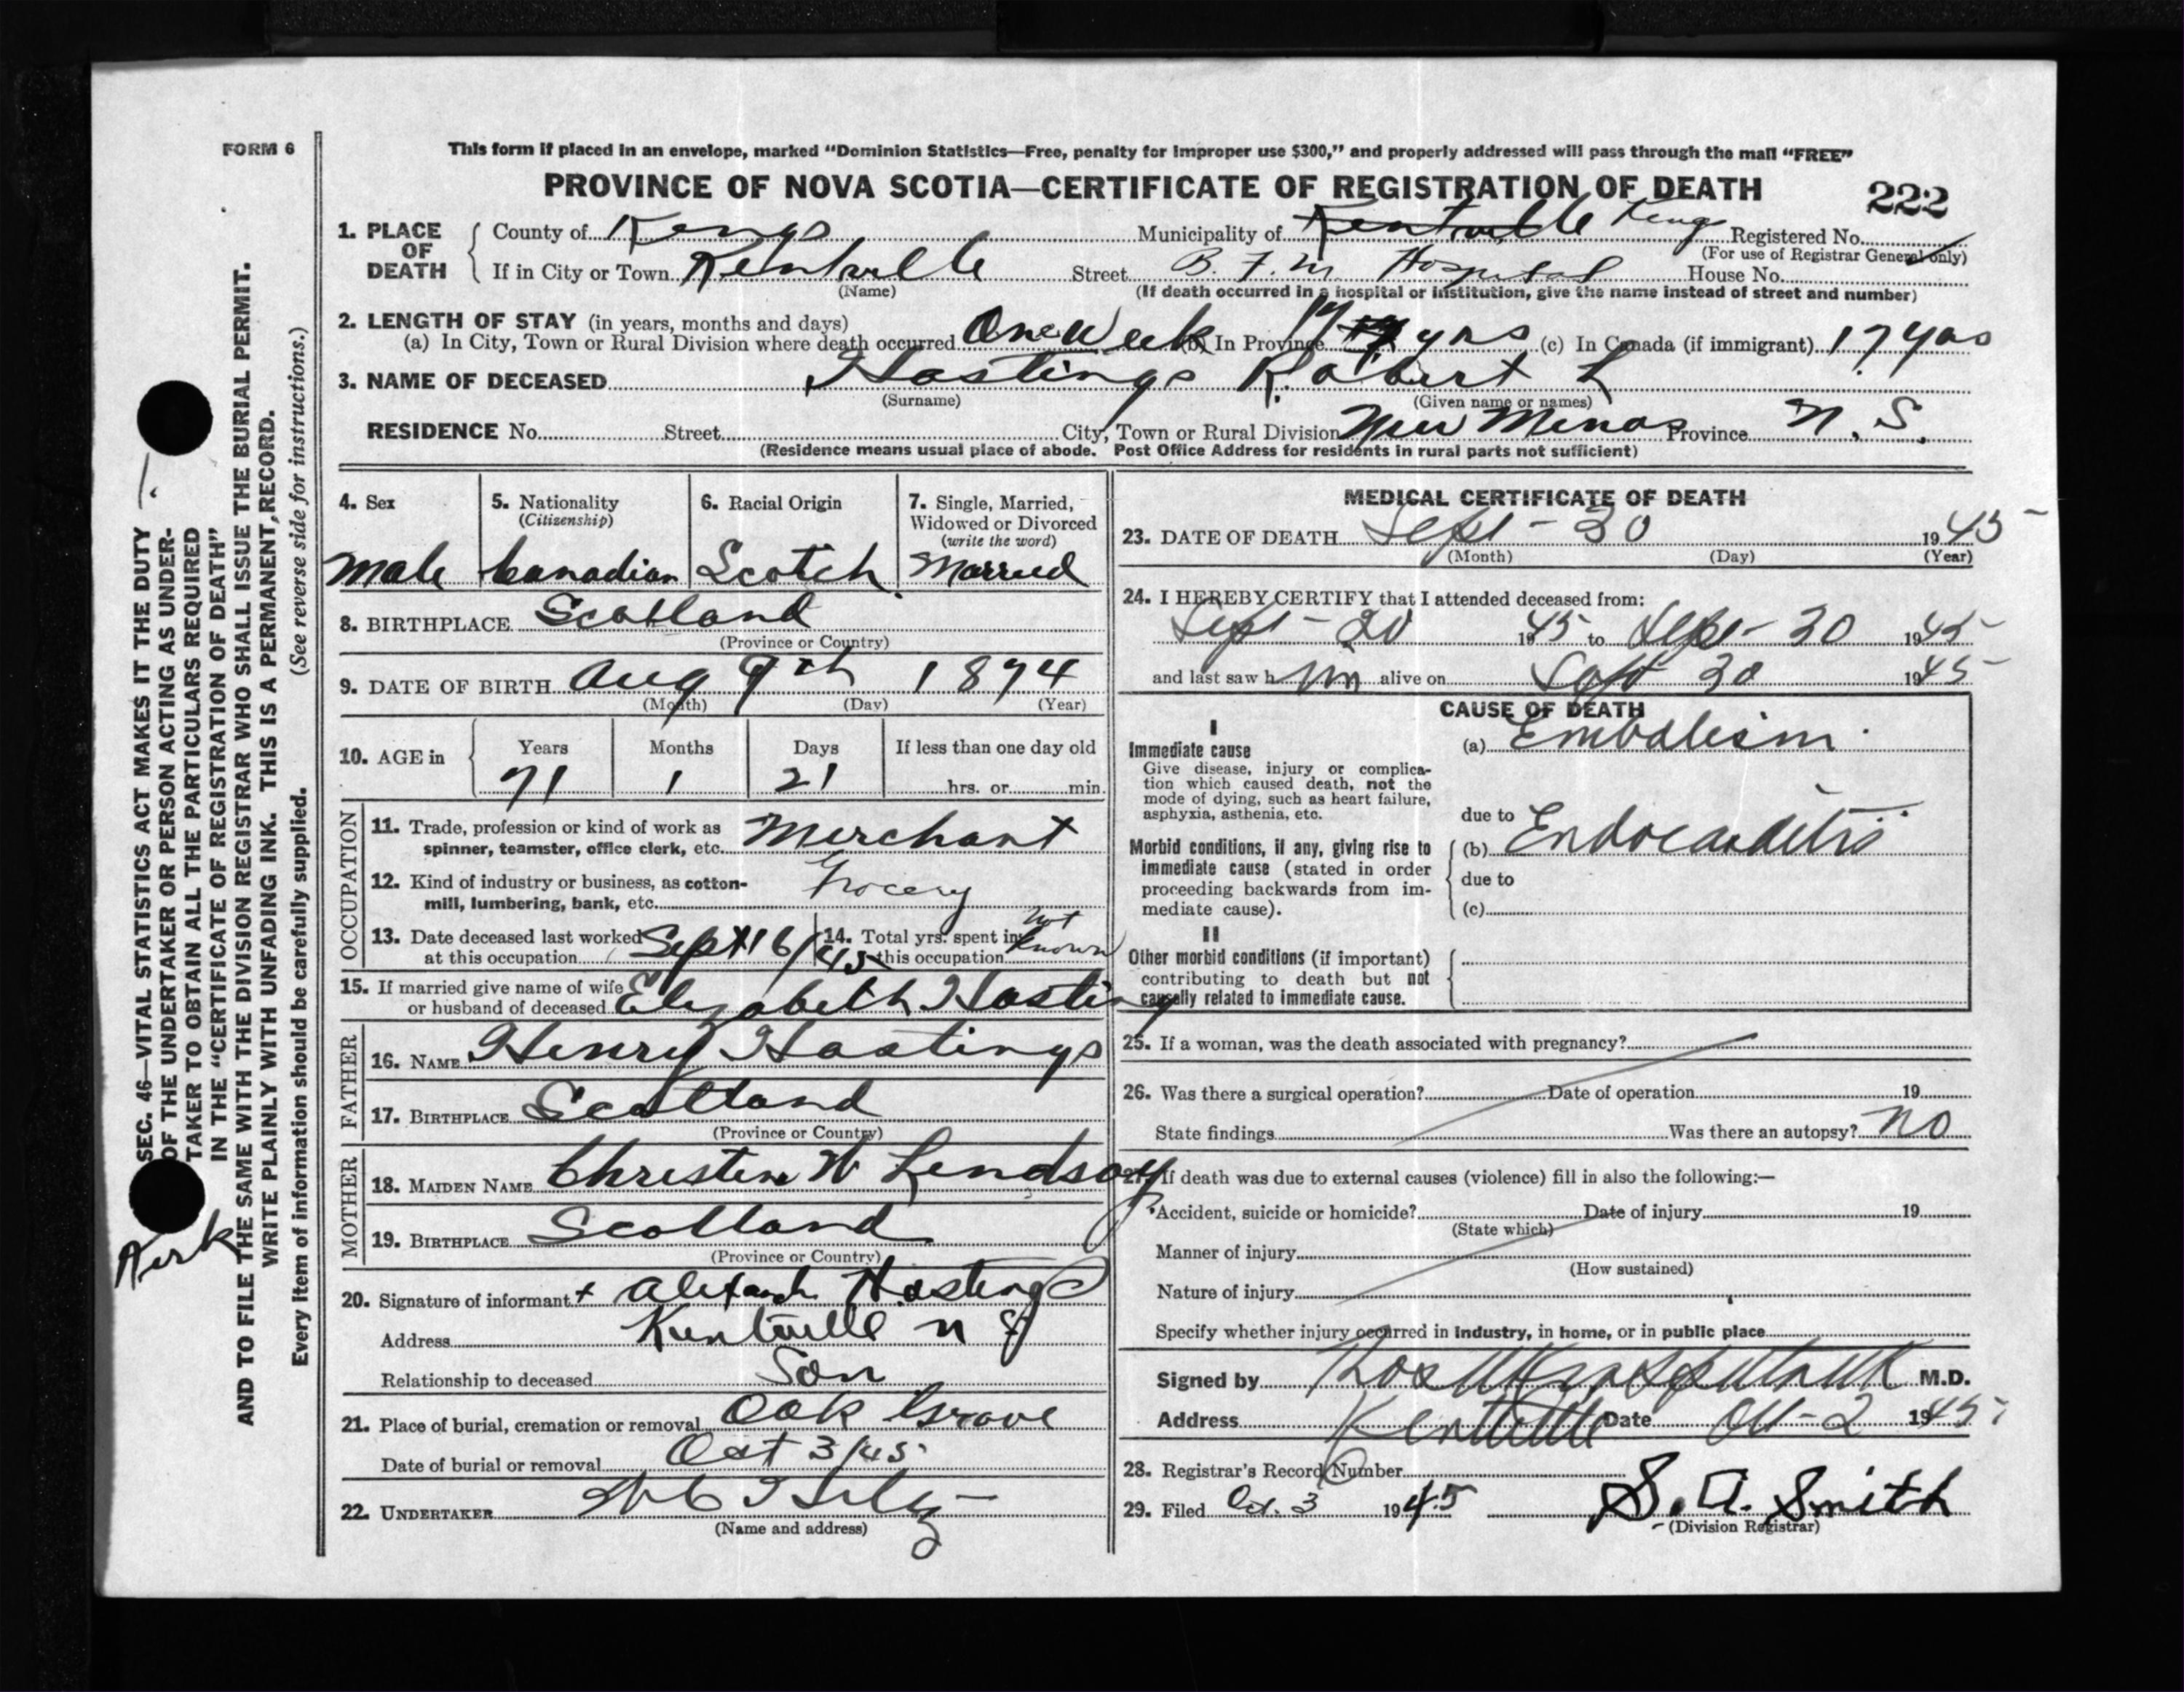 FORM 6
This form if placed in an envelope, marked “Dominion Statistics—Free, penalty for improper use $300,” and properly addressed will pass through the mail “FREE”
PROVINCE OF NOVA SCOTIA—CERTIFICATE OF REGISTRATION OF DEATH
222
1. PLACE OF DEATH
County of Kings
Municipality of Kentville Kings
Registered No.
(For use of Registrar General only)
If in City or Town Kentville
(Name)
Street B. F. M. Hospital House No.
(If death occurred in a hospital or institution, give the name instead of street and number)
2. LENGTH OF STAY (in years, months and days)
(a) In City, Town or Rural Division where death occurred One Week (b) In Province 17 yrs (c) In Canada (if immigrant) 17 yrs
3. NAME OF DECEASED Hastings Robert L
(Surname) (Given name or names)
RESIDENCE No. Street City, Town or Rural Division New Minas Province N. S.
(Residence means usual place of abode. Post Office Address for residents in rural parts not sufficient)
4. Sex
male
5. Nationality
(Citizenship)
Canadian
6. Racial Origin
Scotch
7. Single, Married,
Widowed or Divorced
(write the word)
Married
8. BIRTHPLACE Scotland
(Province or Country)
9. DATE OF BIRTH Aug 9th 1874
(Month) (Day) (Year)
10. AGE in
Years Months Days If less than one day old
71 1 21 hrs. or min.
OCCUPATION
11. Trade, profession or kind of work as
spinner, teamster, office clerk, etc. Merchant
12. Kind of industry or business, as cotton-
mill, lumbering, bank, etc. Grocery
13. Date deceased last worked
at this occupation Sept 16/45
14. Total yrs. spent in
this occupation not known
15. If married give name of wife
or husband of deceased Elizabeth Hasting
FATHER
16. NAME Henry Hastings
17. BIRTHPLACE Scotland
(Province or Country)
MOTHER
18. MAIDEN NAME Christina W Lindsay
19. BIRTHPLACE Scotland
(Province or Country)
20. Signature of informant + Hastings
Address Kentville N S
Relationship to deceased Son
21. Place of burial, cremation or removal Oak Grove
Date of burial or removal Oct 3/45
22. UNDERTAKER
(Name and address)
MEDICAL CERTIFICATE OF DEATH
23. DATE OF DEATH Sept - 30 1945
(Month) (Day) (Year)
24. I HEREBY CERTIFY that I attended deceased from:
Sept - 20 1945 to Sept - 30 1945
and last saw him alive on Sept 30 1945
CAUSE OF DEATH
I
Immediate cause
Give disease, injury or complica-
tion which caused death, not the
mode of dying, such as heart failure,
asphyxia, asthenia, etc.
(a) Embolism
due to
Morbid conditions, if any, giving rise to
immediate cause (stated in order
proceeding backwards from im-
mediate cause).
(b) Endocarditis
due to
(c)
II
Other morbid conditions (if important)
contributing to death but not
causally related to immediate cause.
25. If a woman, was the death associated with pregnancy?
26. Was there a surgical operation? Date of operation 19
State findings Was there an autopsy? no
27. If death was due to external causes (violence) fill in also the following:—
Accident, suicide or homicide? Date of injury 19
(State which)
Manner of injury
(How sustained)
Nature of injury
Specify whether injury occurred in industry, in home, or in public place
Signed by M.D.
Address Kentville Date Oct - 2 1945
28. Registrar's Record Number
29. Filed Oct. 3 1945 S. A. Smith
(Division Registrar)
SEC. 46—VITAL STATISTICS ACT MAKES IT THE DUTY
OF THE UNDERTAKER OR PERSON ACTING AS UNDER-
TAKER TO OBTAIN ALL THE PARTICULARS REQUIRED
IN THE “CERTIFICATE OF REGISTRATION OF DEATH”
AND TO FILE THE SAME WITH THE DIVISION REGISTRAR WHO SHALL ISSUE THE BURIAL PERMIT.
WRITE PLAINLY WITH UNFADING INK. THIS IS A PERMANENT RECORD.
Every item of information should be carefully supplied. (See reverse side for instructions.)